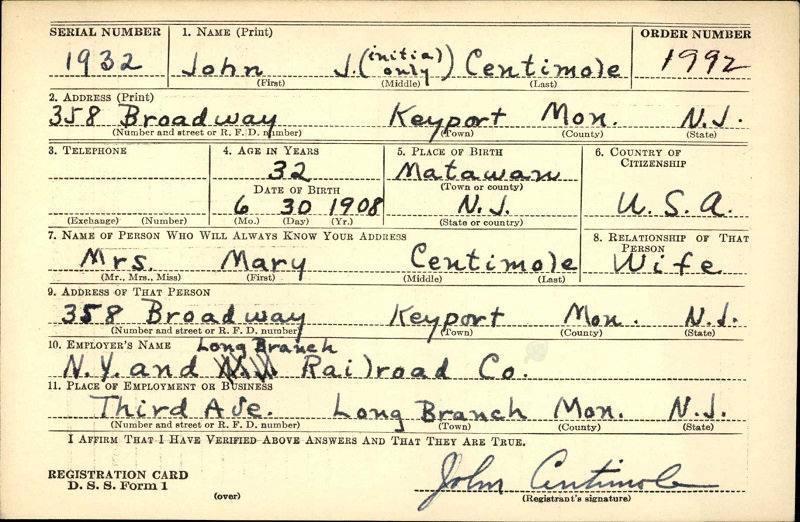 SERIAL NUMBER 1. NAME (Print) ORDER NUMBER
1932 John J. (initial only) Centimole 1992
(First) (Middle) (Last)
2. ADDRESS (Print)
358 Broadway Keyport Mon. N.J.
(Number and street or R. F. D. number) (Town) (County) (State)
3. TELEPHONE 4. AGE IN YEARS 5. PLACE OF BIRTH 6. COUNTRY OF CITIZENSHIP
32 Matawan
DATE OF BIRTH (Town or county)
6 30 1908 N.J. U.S.A.
(Exchange) (Number) (Mo.) (Day) (Yr.) (State or country)
7. NAME OF PERSON WHO WILL ALWAYS KNOW YOUR ADDRESS 8. RELATIONSHIP OF THAT PERSON
Mrs. Mary Centimole Wife
(Mr., Mrs., Miss) (First) (Middle) (Last)
9. ADDRESS OF THAT PERSON
358 Broadway Keyport Mon. N.J.
(Number and street or R. F. D. number) (Town) (County) (State)
10. EMPLOYER'S NAME Long Branch
N.Y. and Railroad Co.
11. PLACE OF EMPLOYMENT OR BUSINESS
Third Ave. Long Branch Mon. N.J.
(Number and street or R. F. D. number) (Town) (County) (State)
I AFFIRM THAT I HAVE VERIFIED ABOVE ANSWERS AND THAT THEY ARE TRUE.
REGISTRATION CARD
D. S. S. Form 1 John Centimole
(over) (Registrant's signature)